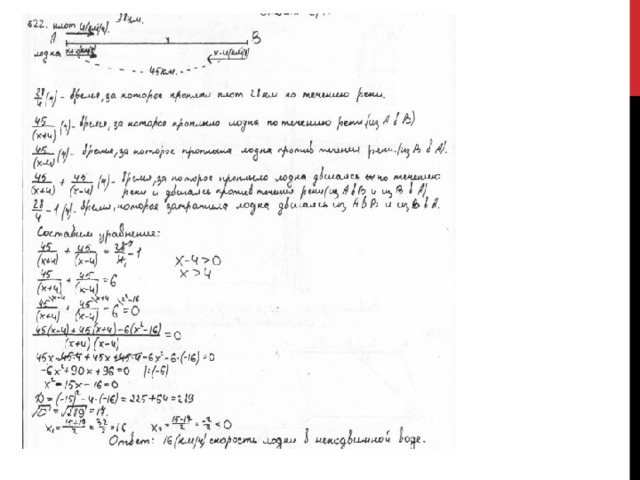 28км.
522. плот 4(км/ч).
А В
лодка х+4(км/ч) х-4(км/ч)
45км.
28/4 (ч) - время, за которое проплыл плот 28 км по течению реки.
45/(х+4) (ч) - время, за которое проплыла лодка по течению реки (из А в В)
45/(х-4) (ч) - время, за которое проплыла лодка против течения реки (из В в А).
45/(х+4) + 45/(х-4) (ч) - время, за которое проплыла лодка двигаясь по течению
реки и двигаясь против течения реки (из А в В и из В в А)
28/4 - 1 (ч) - время, которое затратила лодка двигаясь из А в В и из В в А.
Составим уравнение:
45/(х+4) + 45/(х-4) = 28/4 - 1
х-4>0
х>4
45/(х+4) + 45/(х-4) = 6
45/(х+4) + 45/(х-4) - 6 = 0
45(х-4)+45(х+4)-6(х²-16)/(х+4)(х-4) = 0
45х-45·4+45х+45·4-6х²-6·(-16)=0
-6х²+90х+96=0 |:(-6)
х²-15х-16=0
D=(-15)²-4·(-16)=225+64=289
√D=√289=17.
х₁=15+17/2=32/2=16 х₂=15-17/2=-2/2<0
Ответ: 16 (км/ч) скорость лодки в неподвижной воде.